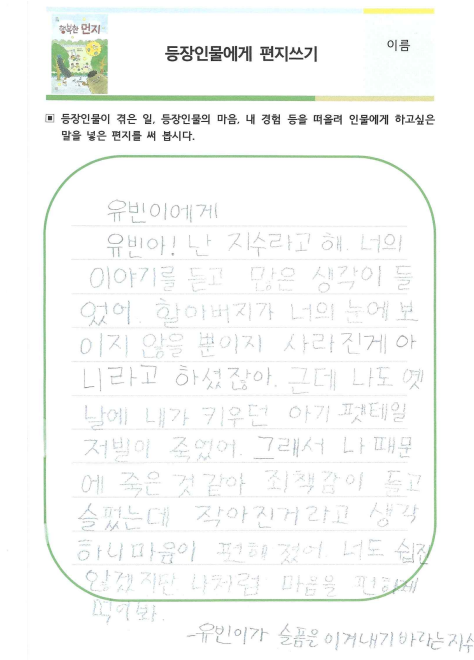 행복한 먼지
등장인물에게 편지쓰기
이름
▣ 등장인물이 겪은 일, 등장인물의 마음, 내 경험 등을 떠올려 인물에게 하고싶은
말을 넣은 편지를 써 봅시다.
유빈이에게
유빈아! 난 지수라고 해. 너의
이야기를 듣고 많은 생각이 들
었어. 할아버지가 너의 눈에 보
이지 않을 뿐이지 사라진게 아
니라고 하셨잖아. 근데 나도 옛
날에 내가 키우던 아기 팻테일
저빌이 죽었어. 그래서 나 때문
에 죽은 것 같아 죄책감이 들고
슬펐는데 작아진거라고 생각
하니 마음이 편해 졌어. 너도 쉽진
않겠지만 나처럼 마음을 편하게
먹어봐.
-유빈이가 슬픔을 이겨내기 바라는 지수